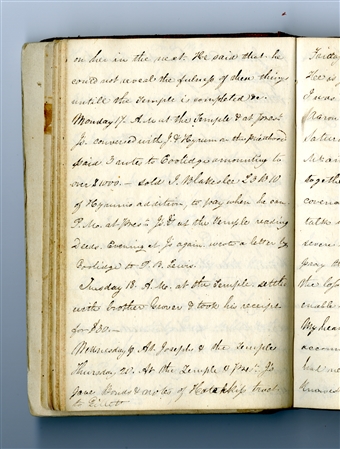 on her in the next. He said that he
could not reveal the fulness of these things
untill the Temple is completed &c.
Monday 17. A.M at the Temple & at Joseph's
Js. conversed with J. & Hyrum on the Priesthood
Paid I notes to Coolidge amounting to
over 2000.— Sold J. Blakesler L 3 B 10
of Hyrum's addition, to pay when he can.
P.M. at Prests Js. & at the Temple reading
Deeds. Evening at Js again. wrote a letter for
Coolidge to P. B. Lewis.
Tuesday 18. A.M. at the Temple. settled
with brother Grover & took his receipt
for $30.—
Wednesday 19. At Josephs & the Temple
Thursday 20. At the Temple & Prest. Js.
gave Bonds & notes of Hotchkiss tract
to
Friday
He as
I was
Aaron
Satur
togethe
covena
talk
severe
pray th
enable
My hea
accom